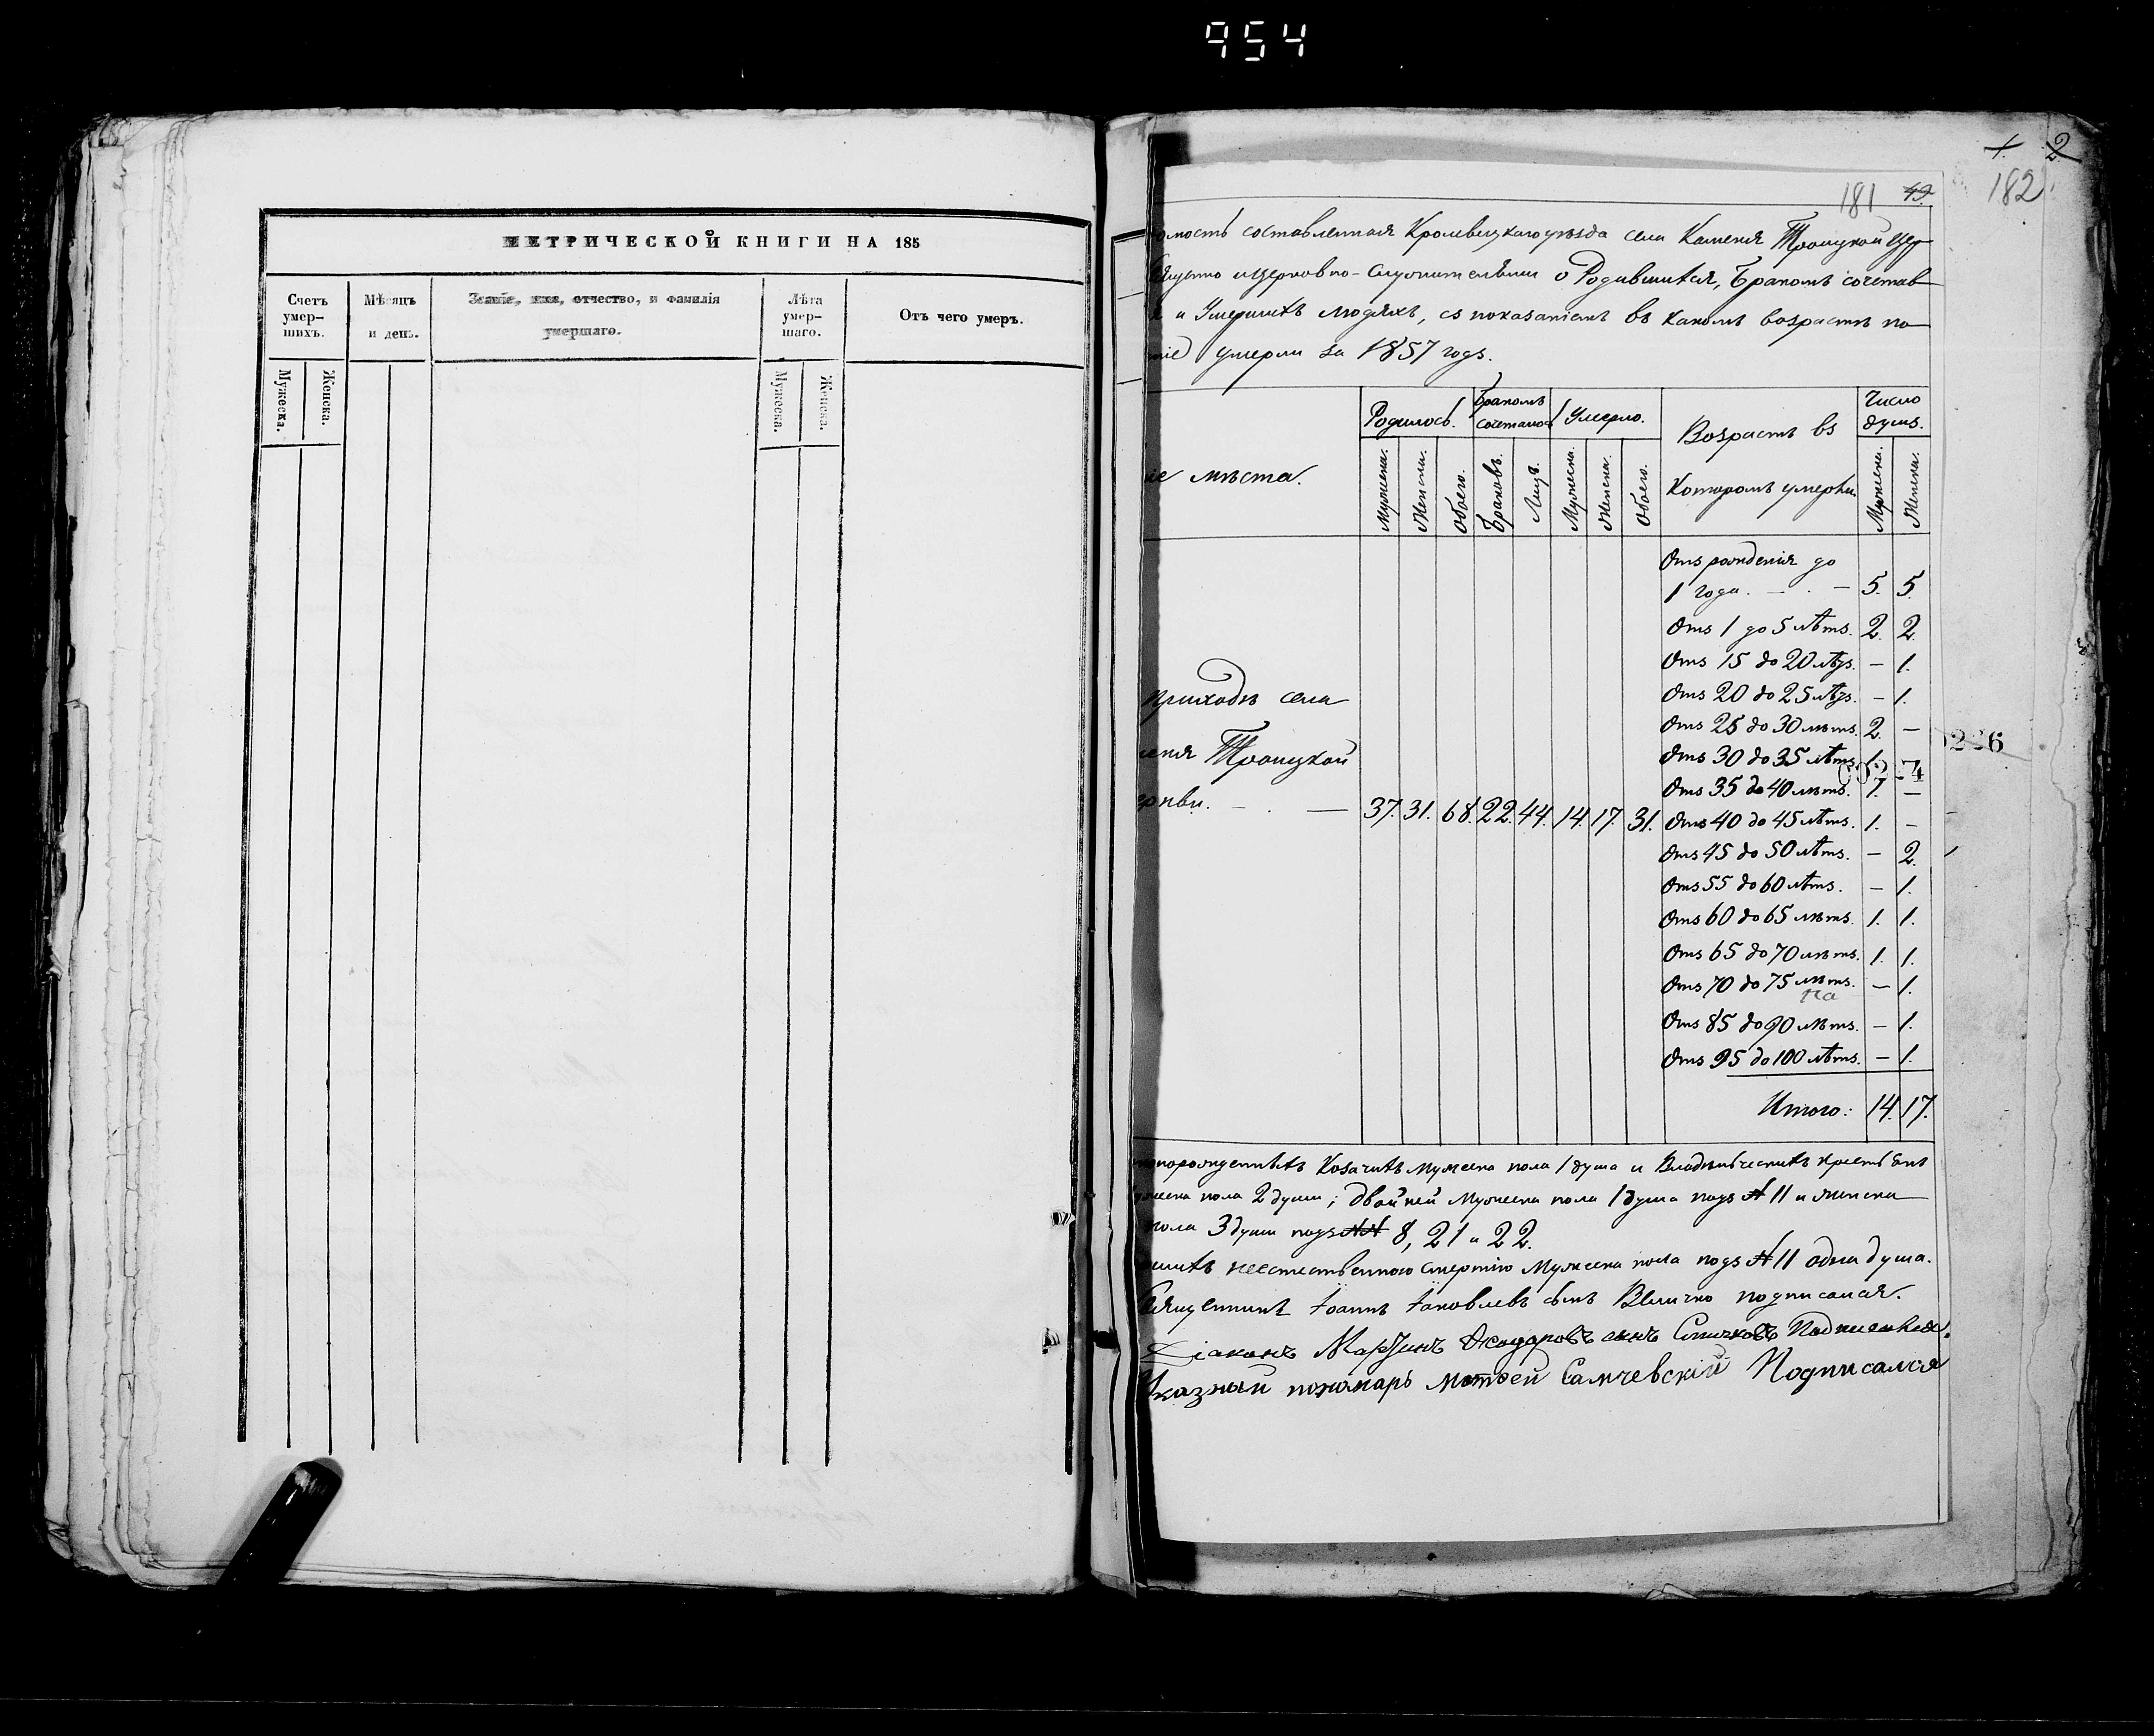 954
МЕТРИЧЕСКОЙ КНИГИ НА 185
Счетъ умер-
шихъ.
Мѣсяцъ
и день.
Званіе, имя, отчество, и фамилія
умершаго.
Лѣта
умер-
шаго.
Отъ чего умеръ.
Мужеска.
Женска.
Мужеска.
Женска.
1. 2
182.
181 49
омость составленная Кролевецкаго уѣзда села Каменя Троицкой цер
Священно и церковно-служителями о Родившихся, Бракомъ сочетав
и Умершихъ людяхъ, съ показаніемъ въ какомъ возрастѣ по
умерли за 1857 годъ.
ие мѣста.
Родилось.
Бракомъ
сочеталось
Умерло.
Возрастъ въ
Которомъ умерли.
Число
душъ.
Мужеска.
Женска.
Обоего.
Браковъ.
Лицъ.
Мужеска.
Женска.
Обоего.
Мужеска.
Женска.
Отъ рожденія до
1 года. — . — 5. 5.
Отъ 1 до 5 лѣтъ. 2. 2.
Отъ 15 до 20 лѣтъ. — 1.
Отъ 20 до 25 лѣтъ. — 1.
Отъ 25 до 30 лѣтъ. 2. —
Отъ 30 до 35 лѣтъ. 1.
Отъ 35 до 40 лѣтъ. 1. —
Отъ 40 до 45 лѣтъ. 1. —
Отъ 45 до 50 лѣтъ. — 2.
Отъ 55 до 60 лѣтъ. — 1.
Отъ 60 до 65 лѣтъ. 1. 1.
Отъ 65 до 70 лѣтъ. 1. 1.
Отъ 70 до 75 лѣтъ. — 1.
на
Отъ 85 до 90 лѣтъ. — 1.
Отъ 95 до 100 лѣтъ. — 1.
Итого: 14. 17.
приходѣ села
меня Троицкой
ркви. — . — 37. 31. 68. 22. 44. 14. 17. 31.
норожденныхъ Козачихъ мужеска пола 1 душа и Владѣльческихъ крестьянъ
мужеска пола 2 души; двойней Мужеска пола 1 душа подъ № 11 и женска
пола 3 души подъ №№ 8, 21 и 22.
шихъ неестественною смертію Мужеска пола подъ № 11 одна душа.
Священникъ Іоаннъ Іаковлевъ сынъ Величко подписался.
Діаконъ Мартинъ сынъ Подписался.
Указный пономарь Матѳей Самчевскій Подписался